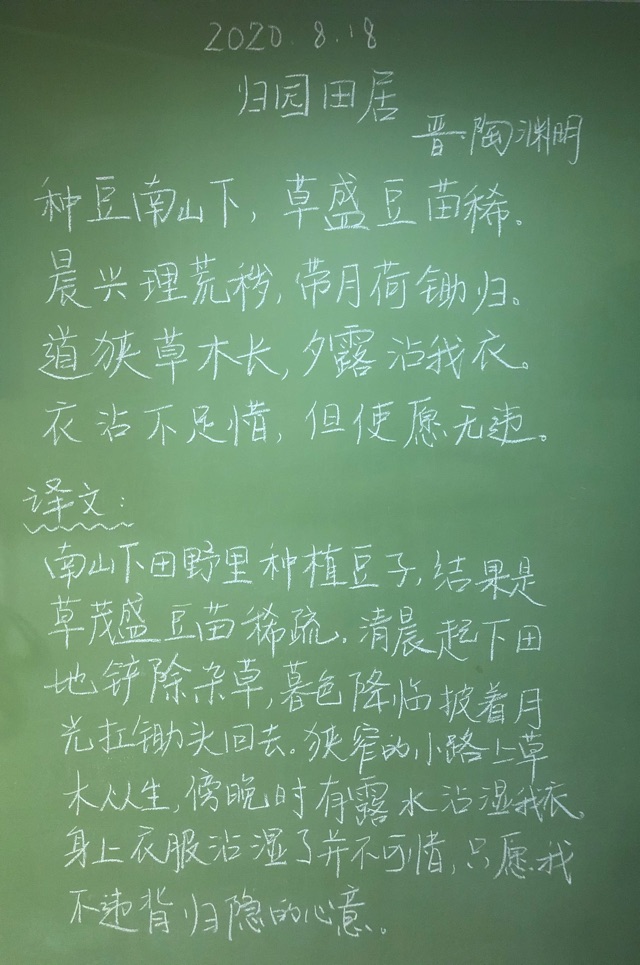 2020.8.18
归园田居
晋·陶渊明
种豆南山下，草盛豆苗稀。
晨兴理荒秽，带月荷锄归。
道狭草木长，夕露沾我衣。
衣沾不足惜，但使愿无违。
译文：
南山下田野里种植豆子，结果是
草茂盛豆苗稀疏。清晨起下田
地铲除杂草，暮色降临披着月
光扛锄头回去。狭窄的小路上草
木从生，傍晚时有露水沾湿我衣。
身上衣服沾湿了并不可惜，只愿我
不违背归隐的心意。